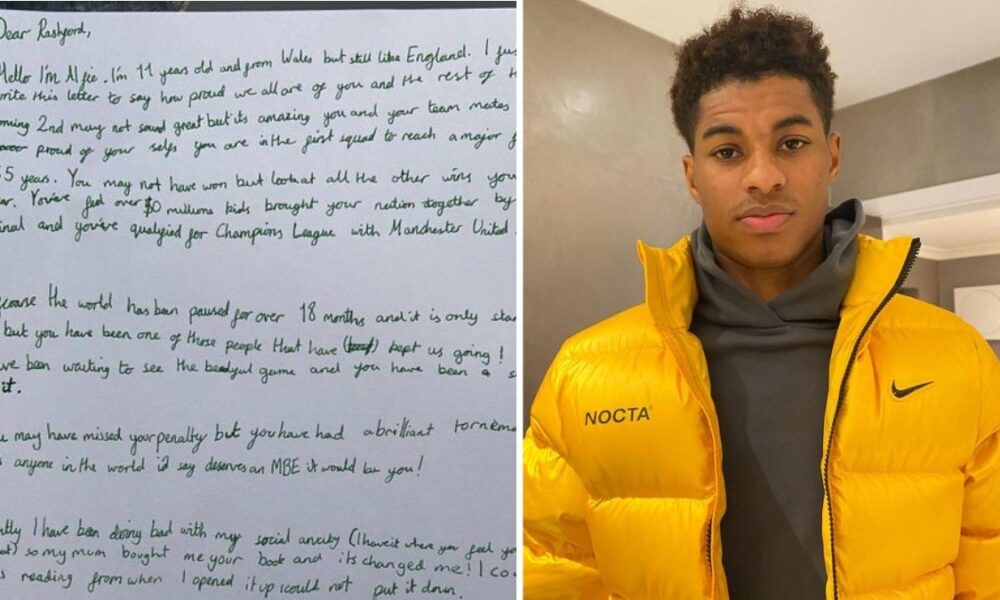 Dear Rashford,
Hello I'm Alfie. I'm 11 years old and from Wales but still like England. I
write this letter to say how proud we all are of you and the rest of
coming 2nd may not sound great but its amazing you and your team mates
proud of your selfs you are in the first squad to reach a major
55 years. You may not have won but look at all the other wins you
You've fed over $0 millions kids brought your nation together by
and you've qualified for Champions League with Manchester United
the world has ben paused for over 18 months and it is only
but you have been one of those people that have kept us going!
been waiting to see the game and you have been a
it.
may have missed your penalty but you have had a brilliant
anyone in the world i'd say deserves an MBE it would be you!
I have been doing bad with my social (I have it where you feel
so my mum bought me your book and its changed me! I
reading from when I opened it up i could not put it down.
NOCTA